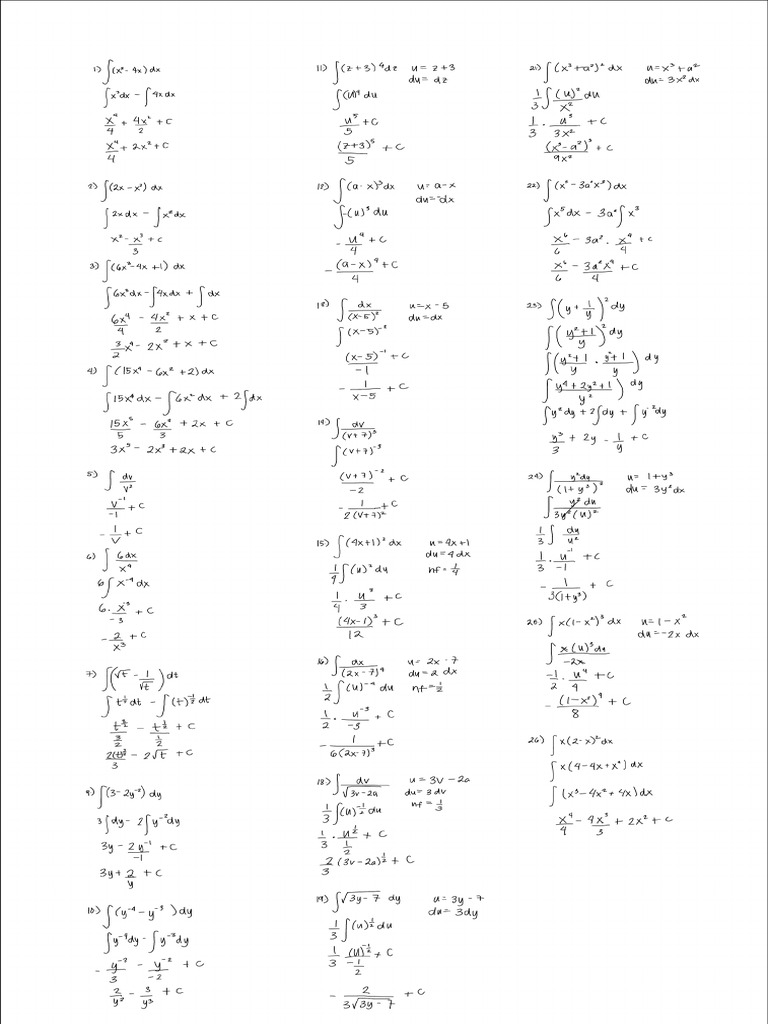 1) ∫(x³ - 4x) dx
∫x³dx - ∫4xdx
x⁴/4 + 4x²/2 + C
x⁴/4 + 2x² + C
2) ∫(2x - x²) dx
∫2xdx - ∫x²dx
x² - x³/3 + C
3) ∫(6x³ - 4x + 1) dx
∫6x³dx - ∫4xdx + ∫dx
6x⁴/4 - 4x²/2 + x + C
3/2 x⁴ - 2x² + x + C
4) ∫(15x⁴ - 6x² + 2) dx
∫15x⁴dx - ∫6x²dx + 2∫dx
15x⁵/5 - 6x³/3 + 2x + C
3x⁵ - 2x³ + 2x + C
5) ∫ dv/v²
v⁻¹/-1 + C
- 1/v + C
6) ∫ 6dx/x⁴
6∫x⁻⁴dx
6 · x⁻³/-3 + C
- 2/x³ + C
7) ∫(√t - 1/√t) dt
∫t^½ dt - ∫(t)^-½ dt
t^3/2 / 3/2 - t^½ / ½ + C
2(t)^3/2 / 3 - 2√t + C
9) ∫(3 - 2y⁻²) dy
3∫dy - 2∫y⁻²dy
3y - 2y⁻¹/-1 + C
3y + 2/y + C
10) ∫(y⁻⁴ - y⁻³) dy
∫y⁻⁴dy - ∫y⁻³dy
- y⁻³/3 - y⁻²/-2 + C
2/y² - 3/y³ + C
11) ∫(z + 3)⁴dz u = z + 3
du = dz
∫(u)⁴ du
u⁵/5 + C
(z+3)⁵/5 + C
12) ∫(a - x)³dx u = a - x
du = -dx
∫-(u)³ du
- u⁴/4 + C
- (a-x)⁴/4 + C
13) ∫ dx/(x-5)² u = x - 5
du = dx
∫(x-5)⁻²
(x-5)⁻¹/-1 + C
- 1/x-5 + C
14) ∫ dv/(v+7)³
∫(v+7)⁻³
(v+7)⁻²/-2 + C
- 1/2(v+7)² + C
15) ∫(4x+1)² dx u = 4x+1
du = 4dx
1/4 ∫(u)² du nf = 1/4
1/4 · u³/3 + C
(4x-1)³/12 + C
16) ∫ dx/(2x-7)⁴ u = 2x - 7
du = 2 dx
1/2 ∫(u)⁻⁴ du nf = 1/2
1/2 · u⁻³/-3 + C
- 1/6(2x-7)³ + C
18) ∫ dv/√3v-2a u = 3v - 2a
du = 3 dv
1/3 ∫(u)^-½ du nf = 1/3
1/3 · u^½ / ½ + C
2/3 (3v-2a)^½ + C
19) ∫√3y-7 dy u = 3y - 7
du = 3dy
1/3 ∫(u)^½ du
1/3 (u)^-½ / -½ + C
- 2/3√3y-7 + C
21) ∫(x³ + a²)² dx u = x³ + a²
du = 3x² dx
1/3 ∫ (u)²/x² du
1/3 · u³/3x² + C
(x³-a²)³/9x² + C
22) ∫(x⁵ - 3a²x³) dx
∫x⁵dx - 3a²∫x³
x⁶/6 - 3a² · x⁴/4 + C
x⁶/6 - 3a²x⁴/4 + C
23) ∫(y + 1/y)² dy
∫(y²+1/y)² dy
∫(y²+1/y · y²+1/y) dy
∫(y⁴+2y²+1/y²) dy
∫y²dy + 2∫dy + ∫y⁻²dy
y³/3 + 2y - 1/y + C
24) ∫ y²dy/(1+y³)² u = 1+y³
du = 3y²dx
∫ y²du/3y²(u)²
1/3 ∫ du/u²
1/3 · u⁻¹/-1 + C
- 1/3(1+y³) + C
25) ∫x(1-x²)³ dx u = 1 - x²
du = -2x dx
∫ x(u)³du/-2x
-1/2 · u⁴/4 + C
- (1-x²)⁴/8 + C
26) ∫x(2-x)² dx
∫x(4 - 4x + x²) dx
∫(x³ - 4x² + 4x) dx
x⁴/4 - 4x³/3 + 2x² + C